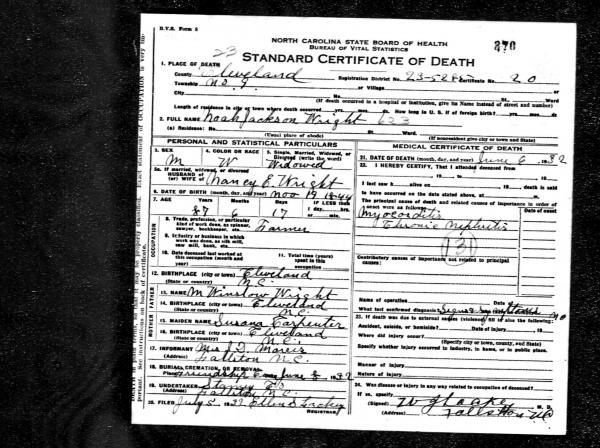 B.V.S. Form 5
NORTH CAROLINA STATE BOARD OF HEALTH
BUREAU OF VITAL STATISTICS
370
23
STANDARD CERTIFICATE OF DEATH
1. PLACE OF DEATH
County Cleveland Registration District No. 23-5285 Certificate No. 20
Township No. 7 or Village
City No. St. Ward
(If death occurred in a hospital or institution, give its Name instead of street and number)
Length of residence in city or town where death occurred yrs. mos. ds. How long in U. S. if of foreign birth? yrs. mos. ds.
2. FULL NAME Noah Jackson Wright 623
(a) Residence: No. St. Ward
(Usual place of abode) (If nonresident give city or town and State)
PERSONAL AND STATISTICAL PARTICULARS
3. SEX M
4. COLOR OR RACE W
5. Single, Married, Widowed, or Divorced (write the word) Widowed
5a. If married, widowed, or divorced
HUSBAND of
(or) WIFE of Nancy E. Wright
6. DATE OF BIRTH (month, day, and year) Nov 19 1844
7. AGE Years Months Days IF LESS than
87 6 17 1 day, hrs.
or min.
OCCUPATION
8. Trade, profession, or particular
kind of work done, as spinner,
sawyer, bookkeeper, etc. Farmer
9. Industry or business in which
work was done, as silk mill,
saw mill, bank, etc.
10. Date deceased last worked at
this occupation (month and
year)
11. Total years (time)
spent in this
occupation
12. BIRTHPLACE (city or town) Cleveland
(State or country) N.C.
FATHER
13. NAME M Winslow Wright
14. BIRTHPLACE (city or town) Cleveland
(State or country) N.C.
MOTHER
15. MAIDEN NAME Susana Carpenter
16. BIRTHPLACE (city or town) Cleveland
(State or country) N.C.
17. INFORMANT
(Address) N.C.
18. BURIAL, CREMATION, OR REMOVAL
Place Friendship Date June 8 1932
19. UNDERTAKER
(Address) N.C.
20. FILED July 5 1932
REGISTRAR
MEDICAL CERTIFICATE OF DEATH
21. DATE OF DEATH (month, day, and year) June 6 1932
22. I HEREBY CERTIFY, That I attended deceased from
19 to 19
I last saw h alive on 19 death is said
to have occurred on the date stated above, at m.
The principal cause of death and related causes of importance in order of
onset were as follows: Date of onset
Myocarditis
Chronic Nephritis
131
Contributory causes of importance not related to principal
causes:
Name of operation Date of
What test confirmed diagnosis? no
23. If death was due to external causes (violence) fill in also the following:
Accident, suicide, or homicide? Date of injury 19
Where did injury occur?
(Specify city or town, county, and State)
Specify whether injury occurred in industry, in home, or in public place.
Manner of injury
Nature of injury
24. Was disease or injury in any way related to occupation of deceased?
If so, specify
(Signed)
(Address) Fallston NC